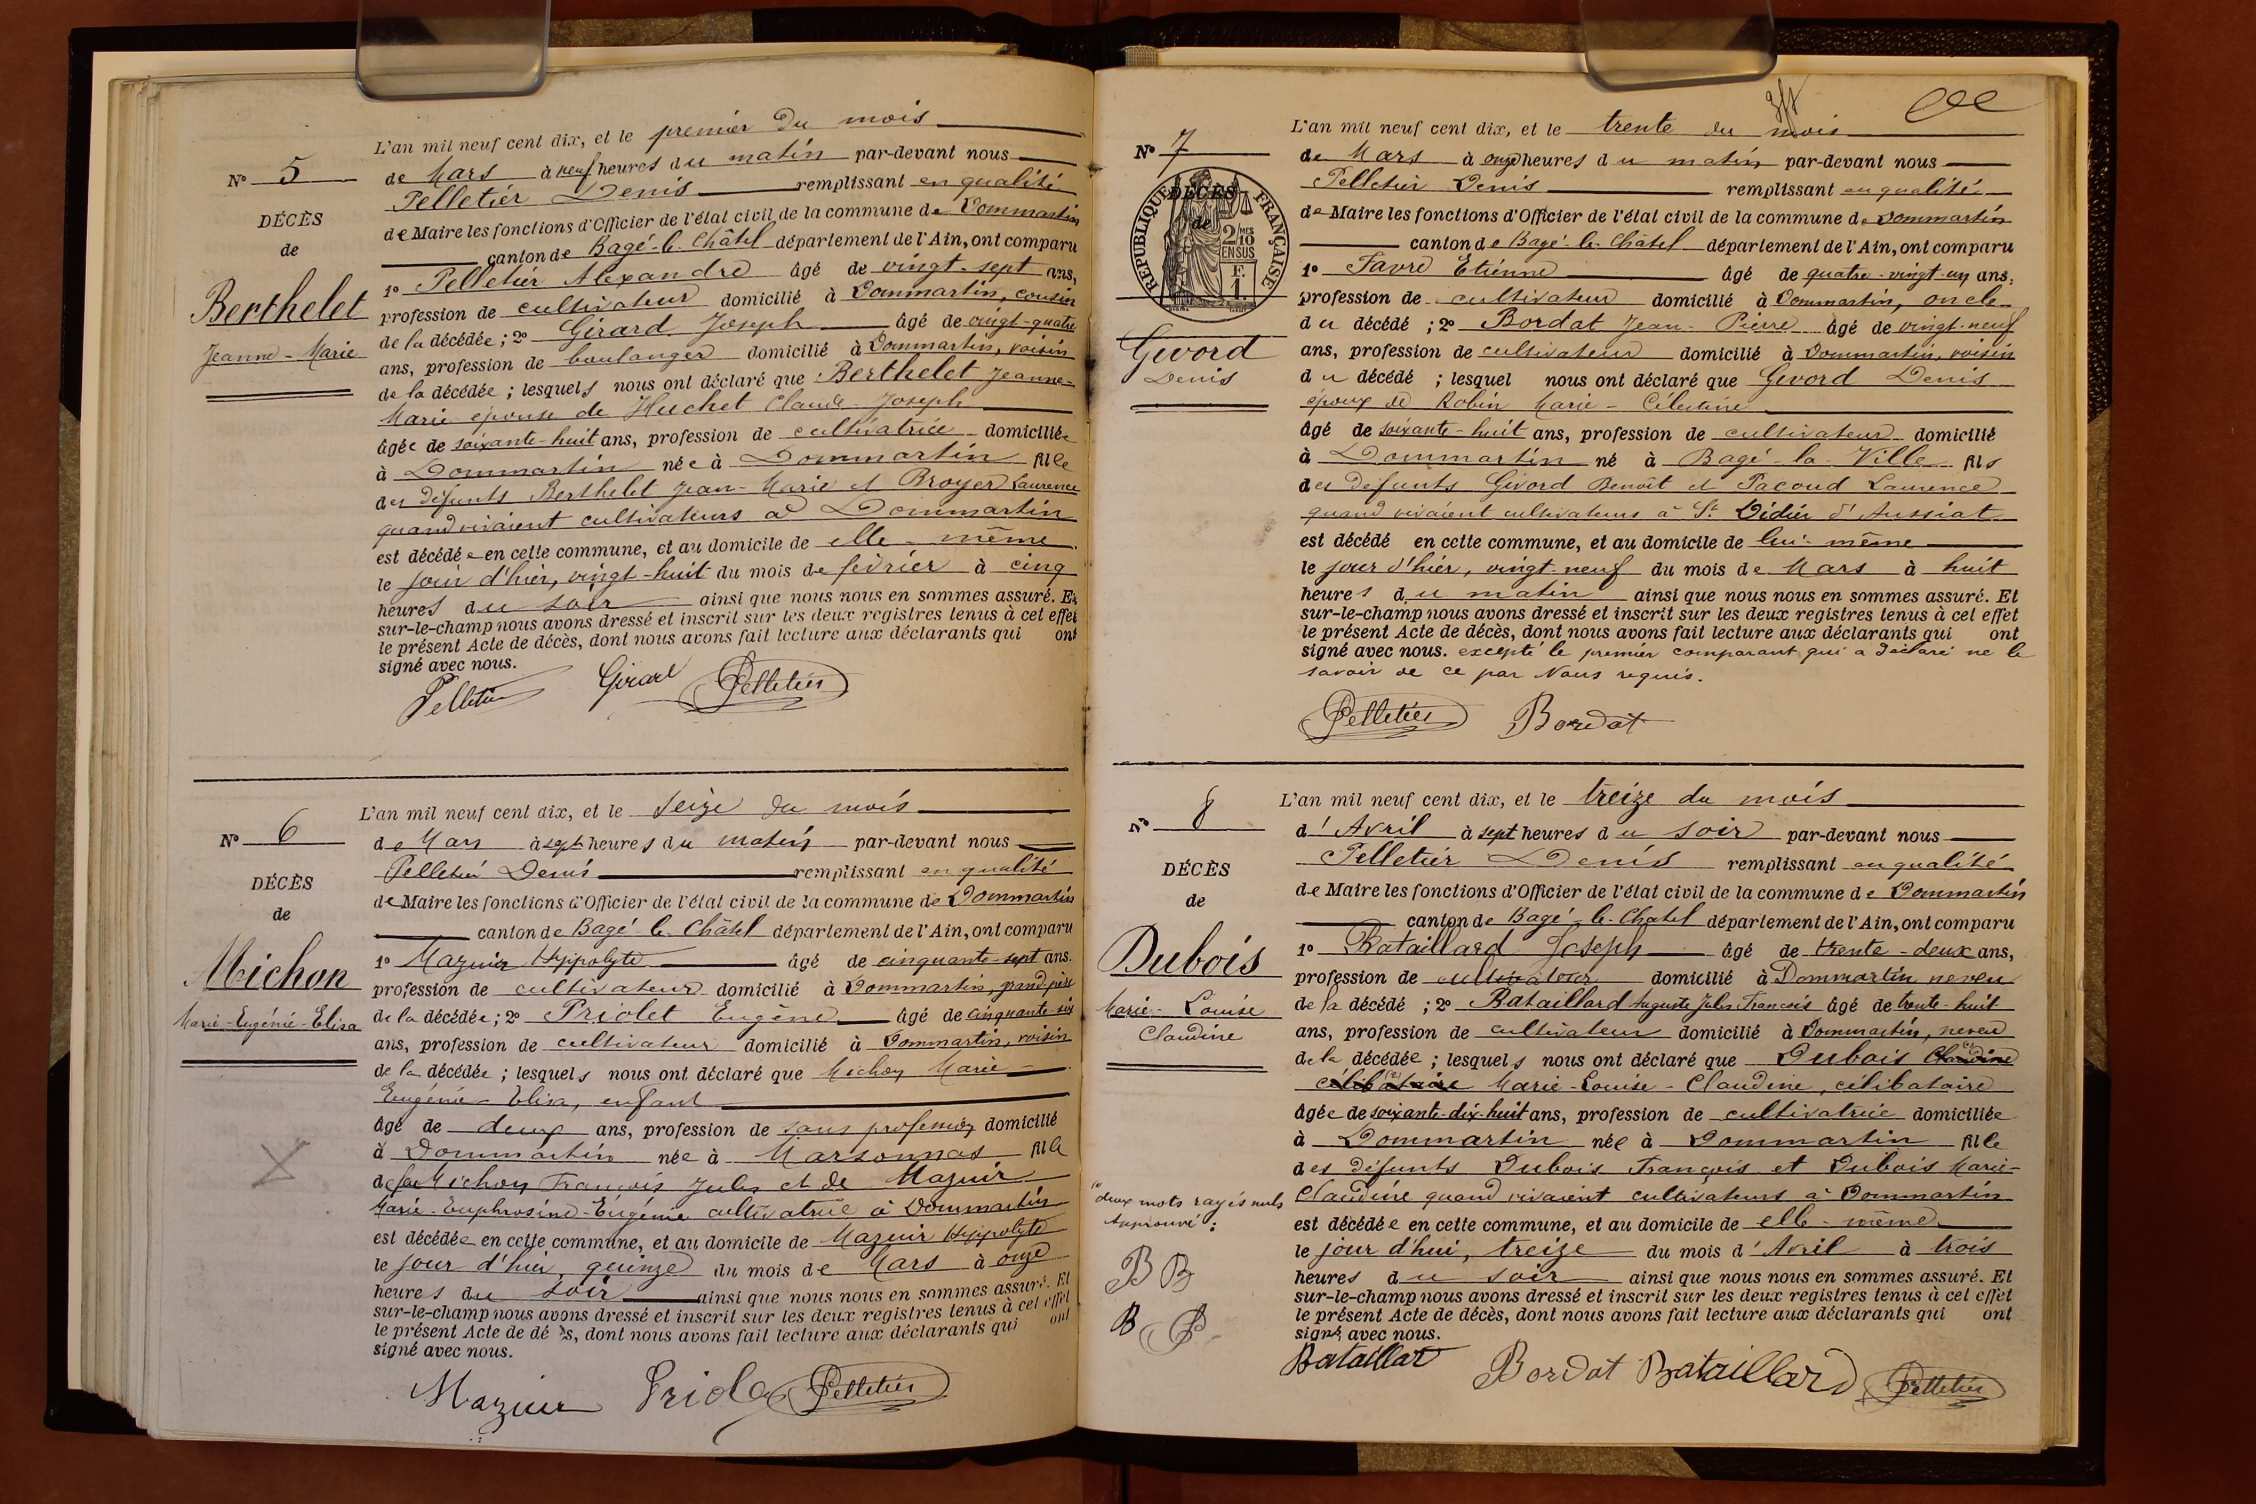 N° 5
DÉCÈS
de
Berthelet
Jeanne-Marie
L'an mil neuf cent dix, et le premier du mois
de Mars à neuf heures du matin par-devant nous
Pelletier Denis remplissant en qualité
de Maire les fonctions d'Officier de l'état civil de la commune de Dommartin
canton de Bagé-le-Châtel département de l'Ain, ont comparu
1° Pelletier Alexandre âgé de vingt-sept ans,
profession de cultivateur domicilié à Dommartin, cousin
de la décédée ; 2° Girard Joseph âgé de vingt-quatre
ans, profession de boulanger domicilié à Dommartin, voisin
de la décédée ; lesquels nous ont déclaré que Berthelet Jeanne-
Marie épouse de Huchet Claude-Joseph
âgée de soixante-huit ans, profession de cultivatrice domiciliée
à Dommartin née à Dommartin fille
des défunts Berthelet Jean-Marie et Broyer Laurence
quand vivaient cultivateurs à Dommartin
est décédée en cette commune, et au domicile de elle-même
le jour d'hier, vingt-huit du mois de février à cinq
heures du soir ainsi que nous nous en sommes assuré. Et
sur-le-champ nous avons dressé et inscrit sur les deux registres tenus à cet effet
le présent Acte de décès, dont nous avons fait lecture aux déclarants qui ont
signé avec nous.
Pelletier Girard Pelletier
N° 6
DÉCÈS
de
Michon
Marie-Eugénie-Elisa
L'an mil neuf cent dix, et le seize du mois
de Mars à sept heures du matin par-devant nous
Pelletier Denis remplissant en qualité
de Maire les fonctions d'Officier de l'état civil de la commune de Dommartin
canton de Bagé-le-Châtel département de l'Ain, ont comparu
1° Mazuir Hyppolyte âgé de cinquante-sept ans.
profession de cultivateur domicilié à Dommartin, grand-père
de la décédée ; 2° Priolet Eugène âgé de cinquante-six
ans, profession de cultivateur domicilié à Dommartin, voisin
de la décédée ; lesquels nous ont déclaré que Michon Marie-
Eugénie-Elisa, enfant
âgé de deux ans, profession de sans profession domicilié
à Dommartin née à Marsonnas fille
de feu Michon François Jules et de Mazuir
Marie-Euphrosine-Eugénie cultivatrice à Dommartin
est décédée en cette commune, et au domicile de Mazuir Hyppolyte
le jour d'hier, quinze du mois de Mars à onze
heures du soir ainsi que nous nous en sommes assuré. Et
sur-le-champ nous avons dressé et inscrit sur les deux registres tenus à cet effet
le présent Acte de décès, dont nous avons fait lecture aux déclarants qui ont
signé avec nous.
Mazuir Priolet Pelletier
N° 7
DÉCÈS
de
RÉPUBLIQUE FRANÇAISE
2/10 EN SUS
F. 1.
Givord
Denis
L'an mil neuf cent dix, et le trente du mois
de Mars à onze heures du matin par-devant nous
Pelletier Denis remplissant en qualité
de Maire les fonctions d'Officier de l'état civil de la commune de Dommartin
canton de Bagé-le-Châtel département de l'Ain, ont comparu
1° Favre Etienne âgé de quatre-vingt-un ans,
profession de cultivateur domicilié à Dommartin, oncle
du décédé ; 2° Bordat Jean-Pierre âgé de vingt-neuf
ans, profession de cultivateur domicilié à Dommartin, voisin
du décédé ; lesquel nous ont déclaré que Givord Denis
époux de Robin Marie-Célestine
âgé de soixante-huit ans, profession de cultivateur domicilié
à Dommartin né à Bagé-la-Ville fils
des défunts Givord Benoît et Pacoud Laurence
quand vivaient cultivateurs à St Didier d'Aussiat
est décédé en cette commune, et au domicile de lui-même
le jour d'hier, vingt-neuf du mois de Mars à huit
heures du matin ainsi que nous nous en sommes assuré. Et
sur-le-champ nous avons dressé et inscrit sur les deux registres tenus à cet effet
le présent Acte de décès, dont nous avons fait lecture aux déclarants qui ont
signé avec nous. excepté le premier comparant qui a déclaré ne le
savoir de ce par Nous requis.
Pelletier Bordat
N° 8
DÉCÈS
de
Dubois
Marie-Louise
Claudine
deux mots rayés nuls
Approuvé :
B B
B P
L'an mil neuf cent dix, et le treize du mois
d'Avril à sept heures du soir par-devant nous
Pelletier Denis remplissant en qualité
de Maire les fonctions d'Officier de l'état civil de la commune de Dommartin
canton de Bagé-le-Châtel département de l'Ain, ont comparu
1° Bataillard Joseph âgé de trente-deux ans,
profession de cultivateur domicilié à Dommartin neveu
de la décédé ; 2° Bataillard Auguste Jules François âgé de trente-huit
ans, profession de cultivateur domicilié à Dommartin, neveu
de la décédée ; lesquels nous ont déclaré que Dubois Claudine
célibataire Marie-Louise-Claudine, célibataire
âgée de soixante-dix-huit ans, profession de cultivatrice domiciliée
à Dommartin née à Dommartin fille
des défunts Dubois François et Dubois Marie-
Claudine quand vivaient cultivateurs à Dommartin
est décédée en cette commune, et au domicile de elle-même
le jour d'hui, treize du mois d'Avril à trois
heures du soir ainsi que nous nous en sommes assuré. Et
sur-le-champ nous avons dressé et inscrit sur les deux registres tenus à cet effet
le présent Acte de décès, dont nous avons fait lecture aux déclarants qui ont
signé avec nous.
Bataillard Bordat Bataillard Pelletier